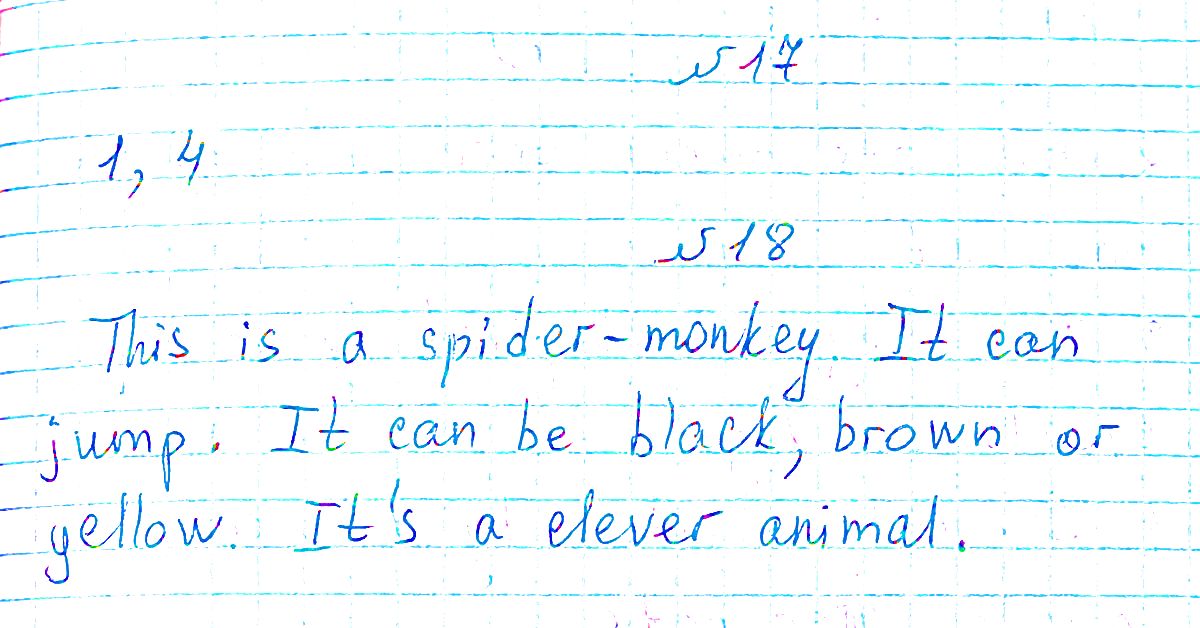 №17
1, 4
№18
This is a spider-monkey. It can
jump. It can be black, brown or
yellow. It's a clever animal.